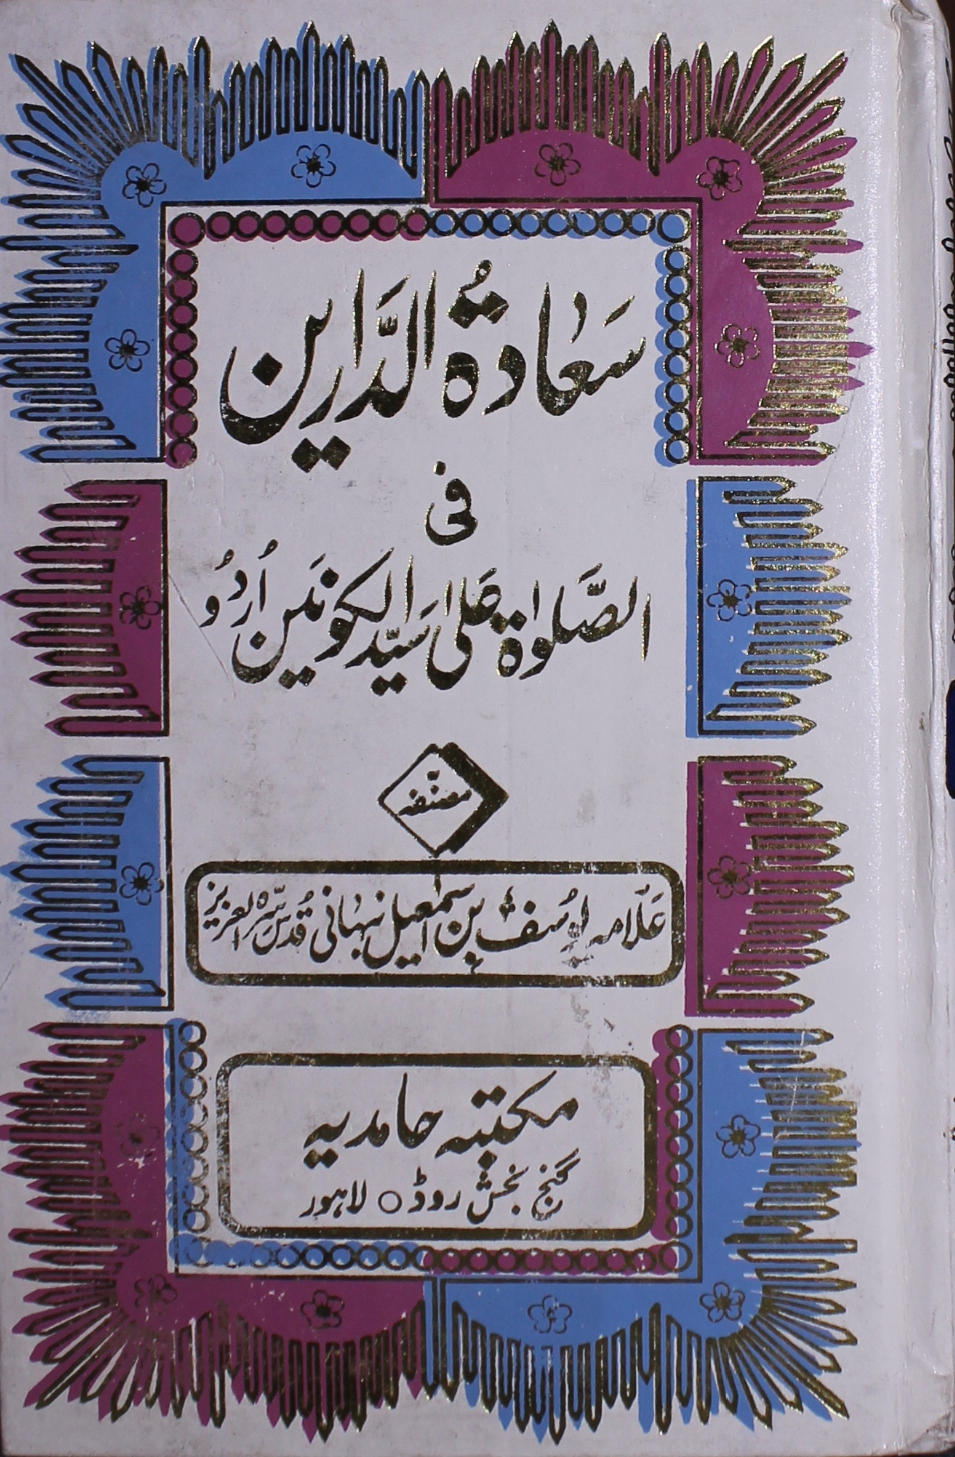 سعادۃ الدَّارین
فی
الصَّلوٰۃ علیٰ سیّد الکونین اُردُو
مصنّفہ
علّامہ یوسف بن اسمٰعیل نبہانی قدس سّرہ العزیز
مکتبہ حامدیہ
گنج بخش روڈ ○ لاہور